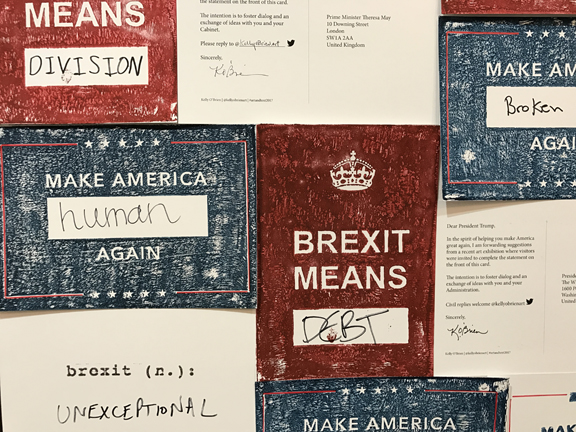 MEANS
DIVISION
the statement on the front of this card.
The intention is to foster dialog and an
exchange of ideas with you and your
Cabinet.
Please reply to @kellyobrienart
Sincerely,
KO'Brien
Prime Minister Theresa May
10 Downing Street
London
SW1A 2AA
United Kingdom
MAKE AM
Broken
AGAI
MAKE AMERICA
human
AGAIN
BREXIT
MEANS
DEBT
Dear President Trump,
In the spirit of helping you make America
great again, I am forwarding suggestions
from a recent art exhibition where visitors
were invited to complete the statement on
the front of this card.
The intention is to foster dialog and an
exchange of ideas with you and your
Administration.
Civil replies welcome @kellyobrienart
Sincerely,
KO'Brien
Presi
The W
1600 P
Washi
United
brexit (n.):
UNEXCEPTIONAL
MAKE AMERICA
MAKE